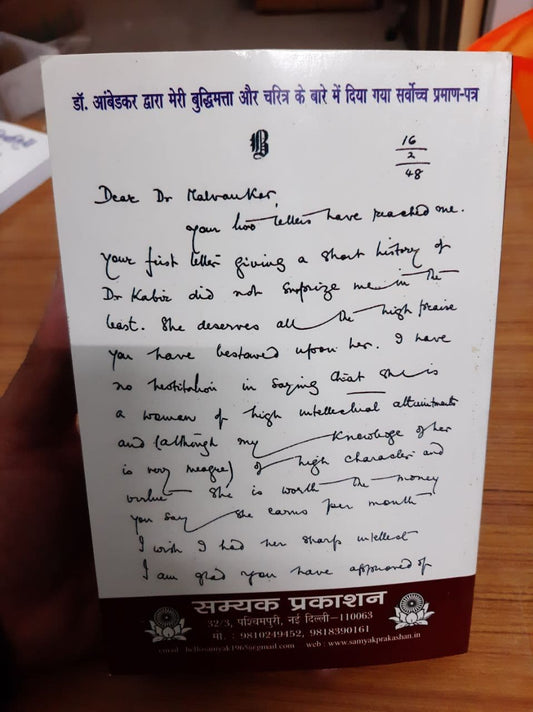 डॉ. आंबेडकर द्वारा मेरी बुद्धिमत्ता और चरित्र के बारे में दिया गया सर्वोच्च प्रमाण-पत्र
B
16
2
48
Dear Dr Malvankar,
Your two letters have reached me.
Your first letter giving a short history of
Dr Kabir did not surprize me in the
least. She deserves all the high praise
you have bestowed upon her. I have
no hesitation in saying that she is
a woman of high intellectual attainments
and (although my knowledge of her
is very meagre) of high character and
virtue. She is worth the money
you say she earns per month
I wish I had her sharp intellect
I am glad you have approved of
सम्यक प्रकाशन
32/3, पश्चिमपुरी, नई दिल्ली-110063
मो. : 9810249452, 9818390161
email : hellosamyak1965@gmail.com web : www.samyakprakashan.in